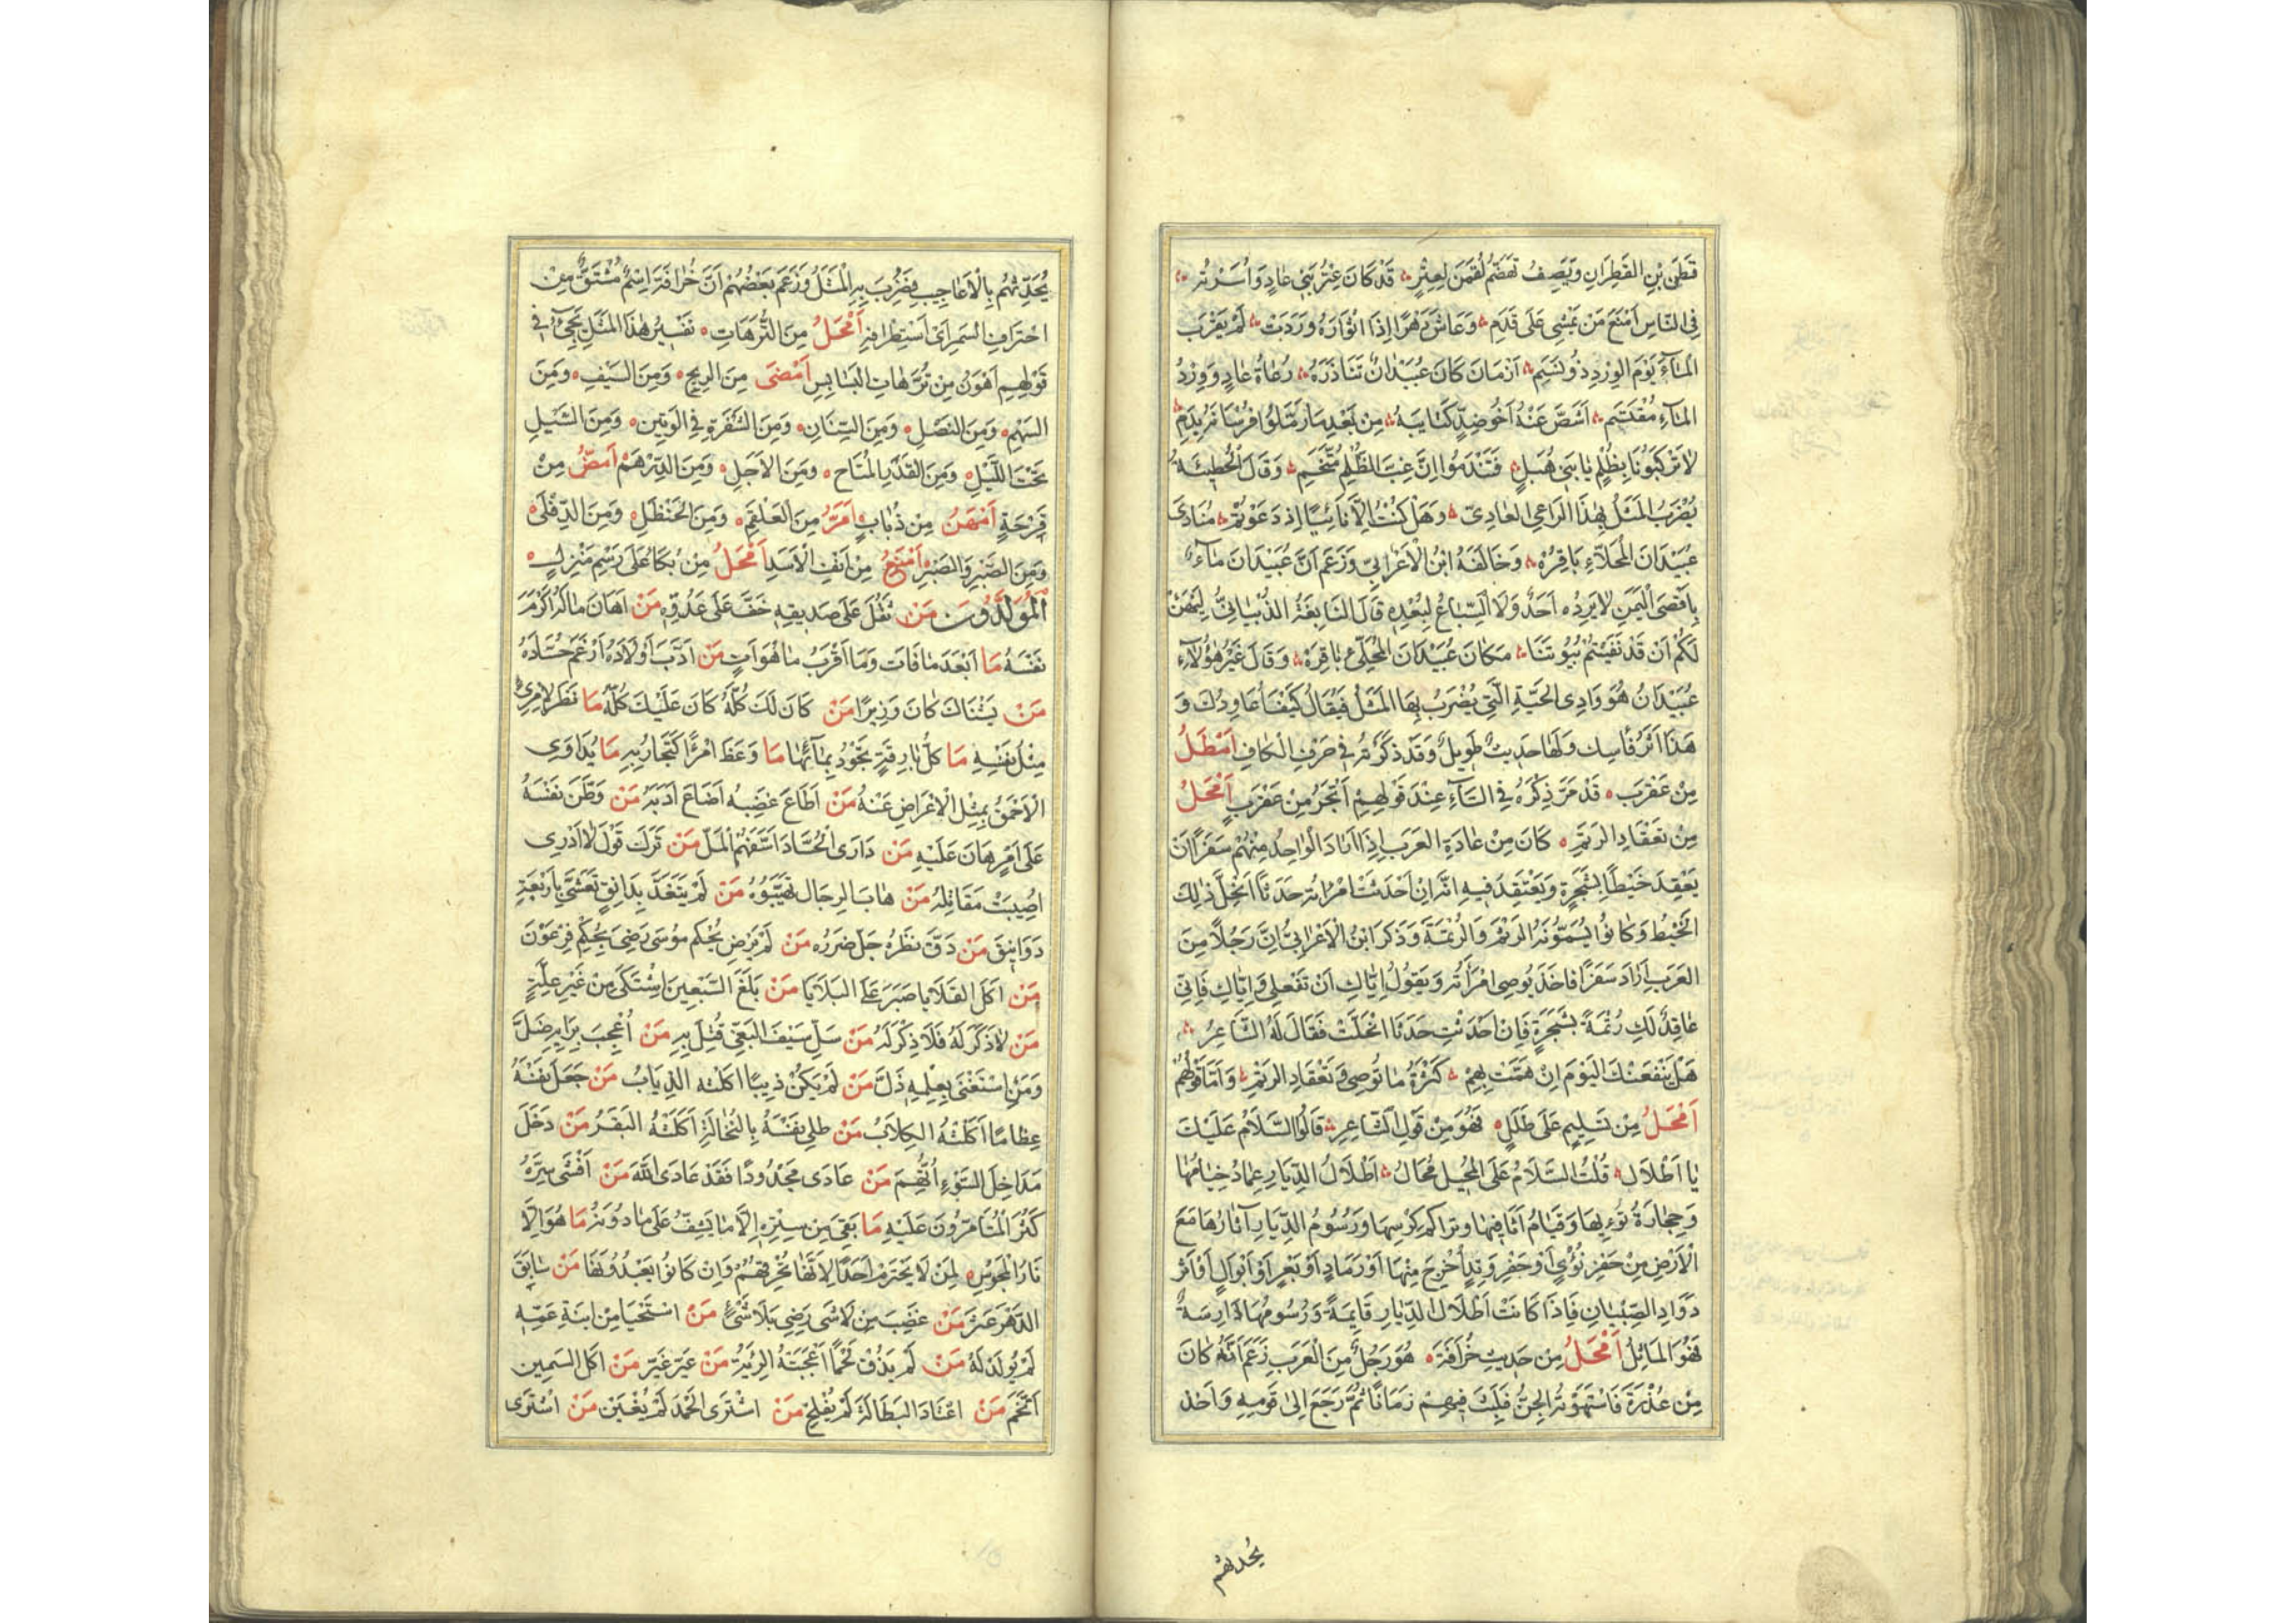 قَطَنِ بْنِ القَطِرَانِ وَيَصِفُ تَهَضُّمَ لُقْمَنَ لِعِتْرٍ قَدْ كَانَ عِتْرُ بَنِي عَادٍ وَأُسْرَتُهُ
فِي النَّاسِ أَمْنَعَ مَنْ يَمْشِي عَلَى قَدَمِ وَعَاشَ دَهْرًا إِذَا أَثْوَارُهُ وَرَدَتْ لَمْ يَقْرَبِ
المَاءَ يَوْمَ الوِرْدِ ذُو نَسَمِ أَزْمَانَ كَانَ عُبَيْدَانٌ تَنَاذَرَهُ رُعَاةُ عَادٍ وَوِرْدُ
المَاءِ مُقْتَسَمِ أَشَصَّ عَنْهُ أَخُو ضِدٍّ كَتَايِبَهُ مِنْ بَعْدِ مَا رَمَّلُوا فُرْسَانَهُ بِدَمِ
لَا تَرْكَبُونَا بِظُلْمٍ يَا بَنِي هُبَلٍ فَتَنْدَمُوا إِنَّ غِبَّ الظُّلْمِ مُتَّخَمِ وَقَالَ الحُطَيْئَةُ
يُضْرَبُ المَثَلُ بِهَذَا الرَاعِي العَادِيّ وَهَلْ كُنْتُ إِلَّا نَائِيًا إِذ دَعَوْتُمْ مُنَادَى
عُبَيْدَانَ المُحَلَّاءِ بَاقِرُهْ وَخَالَفَهُ ابْنُ الأَعْرَابِيّ وَزَعَمَ أَنَّ عُبَيْدَانَ مَاءٌ
بِأَقْصَى اليَمَنِ لَا يَرِدُه أَحَدٌ وَلَا السِّبَاعُ لِبُعْدِهِ قَالَ النَّابِغَةُ الذُّبْيَانِيُّ لِيَهْنَ
لَكُمْ أَنْ قَدْ نَفَيْتُمْ بُيُوتَنَا مَكَانَ عُبَيْدَانَ المُحَلَّىءِ بَاقِرَهْ وَقَالَ غَيْرُ هَؤُلَاءِ
عُبَيْدَانُ هُوَ وَادِى الحَيَّةِ الَّتِي يُضْرَبُ بِهَا المَثَلُ فَيُقَالُ كَيْفَ أُعَاوِدُكَ وَ
هَذَا أَثَرُ فَاسِك وَلَهَا حَدِيثٌ طَوِيلٌ وَقَدْ ذَكَرْتُهُ فِي حَرْفِ الكَافِ أَمْطَلُ
مِنْ عَقْرَبَ قَدْ مَرَّ ذِكْرُهُ فِي التَّاءِ عِنْدَ قَوْلِهِمْ أَتْجَرُ مِنْ عَقْرَبٍ أَمْحَلُ
مِنْ تَعْقَادِ الرَّتَمِ كَانَ مِنْ عَادَةِ العَرَبِ إِذَا أَرَادَ الوَاحِدُ مِنْهُمْ سَفَرًا أَنْ
يَعْقِدَ خَيْطًا بِشَجَرَةٍ وَيَعْتَقِدَ فِيهِ أَنَّه إِنْ أَحْدَثَتْ امْرَأَتُه حَدَثًا انْحَلَّ ذَلِكَ
الخَيْطُ وَكَانُوا يُسَمُّونَهُ الرَّتَمَ وَالرُّتْمَةَ وَذَكَرَ ابْنُ الأَعْرَابِيّ أَنَّ رَجُلًا مِنَ
العَرَبِ أَرَادَ سَفَرًا فَاخَذَ يُوصِى امْرَأَتَهُ وَيَقُولُ إِيَّاكِ أَنْ تَفْعَلِي وَإِيَّاكِ فَإِنِّي
عَاقِدٌ لَكِ رُتْمَةً بِشَجَرَةٍ فَإِنْ أَحْدَثْتِ حَدَثًا انْحَلَّتْ فَقَالَ لَهُ الشَّاعِرُ
هَلْ يَنْفَعَنْكَ اليَوْمَ إِنْ هَمَّتْ بِهِمْ كَثْرَةُ مَا تُوصِي وَتَعْقَادِ الرَّتَمْ وَأَمَّا قَوْلُهُمْ
أَمْحَلُ مِنْ تَسْلِيمٍ عَلَى طَلَلٍ فَهُوَ مِنْ قَوْلِ الشَّاعِرِ قَالُوا السَّلَامُ عَلَيْكَ
يَا أَطْلَالُ قُلْتُ السَّلَامُ عَلَى المُحِيلِ مُحَالُ أَطْلَالُ الدِّيَارِ عِمَادُ خِيَامِهَا
وَحِجَارَةُ نُؤيِهَا وَقِيَامُ أَثَافِيهَا وَتَرَاكُم كِرْسِهَا وَرُسُومُ الدِّيَارِ آثَارُهَا مَعَ
الأَرْضِ مِنْ حَفْرِ نُؤْيٍ أَوْ حَفْرِ وَتِدٍ أُخْرِجَ مِنْهَا أَوْ رَمَادٍ أَوْ بَعْرٍ أَوْ أَبْوَالٍ أَوْ أَثَر
دَوَادِ الصِّبْيَانِ فَإِذَا كَانَتْ أَطْلَالُ الدِّيَارِ قَايِمَةً وَرُسُومُهَا دَارِسَةً
فَهُوَ المَاثِلُ أَمْحَلُ مِنْ حَدِيثِ خُرَافَةَ هُوَ رَجُلٌ مِنَ العَرَبِ زَعَمَ أَنَّهُ كَانَ
مِنْ عُذْرَةَ فَاسْتَهْوَتْهُ الجِنُّ فَلَبِثَ فِيهِمْ زَمَانًا ثُمَّ رَجَعَ إِلَى قَوْمِهِ وَأَخَذ
يُحدثهُم
يُحَدِّثُهُم بِالأَعَاجِيبِ فَضُرِبَ بِهِ المَثَلُ وَزَعَمَ بَعْضُهُمْ أَنَّ خُرَافَةَ اِسْمٌ مُشْتَقٌّ مِنْ
اختِرَافِ السَمَرِ أَىْ اسْتِطْرَافِهِ أَمْحَلُ مِنَ التُّرَّهَاتِ تَفْسِيرُ هَذَا المَثَلِ يَجِيءُ فِي
قَوْلِهِمِ أَهْوَنُ مِن تُرَّهَاتِ البَسَابِسِ أَمْضَى مِنَ الرِيحِ وَمِنَ السَيْفِ وَمِنَ
السَهْمِ وَمِنَ النَصْلِ وَمِنَ السِّنَانِ وَمِنَ الشَّفْرَةِ فِي الوَتِينِ وَمِنَ السَّيْلِ
تَحْتَ اللَّيْلِ وَمِنَ القَدَرِ المُتَاحِ وَمِنَ الأَجَلِ وَمِنَ الدِّرْهَمْ أَمَضُّ مِنْ
قَرْحَةٍ أَمْهَنُ مِنْ ذُبَابٍ أَمَرُّ مِنَ العَلْقَمِ وَمِنَ الحَنْظَلِ وَمِنَ الدِّفْلَى
وَمِنَ الصَّبْرِ وَالصَبْرِ أَمْنَعُ مِنْ أَنْفِ الأَسَدِ أَمْحَلُ مِنْ بُكَاءٍ عَلَى رَسْمِ مَنْزِلٍ
المُوَلَّدُونَ مَنْ ثَقُلَ عَلَى صَدِيقِهِ خَفَّ عَلَى عَدُوِّهِ مَنْ أَهَانَ مَالَهُ أَكْرَمَ
نَفْسَهُ مَا أَبْعَدَ مَا فَاتَ وَمَا أَقْرَبُ مَا هُوَ آتٍ مَنْ أَدَّبَ أَوْلَادَهُ أَرْغَمَ حُسَّادَهُ
مَنْ يَشْنَاكَ كَانَ وَزِيرًا مَنْ كَانَ لَكَ كُلُّهُ كَانَ عَلَيْكَ كُلُّهُ مَا نَظَرَ لِامْرِئٍ
مِثْلُ نَفْسِهِ مَا كُلُّ بَارِقَةٍ تَجُوْدُ بِمَائِهَا مَا وَعَظَ امْرًأ كَتَجَارِبِهِ مَا يُدَاوَى
الأَحْمَقُ بِمِثْلِ الإِعْرَاضِ عَنْهُ مَنْ أَطَاعَ غَضَبَهُ أَضَاعَ أَدَبَهُ مَنْ وَطَّنَ نَفْسَهُ
عَلَى أَمْرٍ هَانَ عَلَيْهِ مَنْ دَارَى الحُسَّادَ أَسَفَّهُمُ المَلّ مَنْ تَرَكَ قَوْلَ لَا أَدْرِى
اُصِيبَتْ مَقَاتِلُهُ مَنْ هَابَ الرِجَالَ تَهَيَّبُوْهُ مَنْ لَمْ يَتَغَدَّ بِدَانِقٍ تَعَشَّى بِأَرْبَعَةِ
دَوَانِيقَ مَنْ دَقَّ نَظَرُهُ جَلَّ ضَرَرُه مَنْ لَمْ يَرْضَ بِحُكْمِ مُوسَى رَضِىَ بِحُكْمِ فِرْعَوْنَ
مَنْ أَكَلَ القَلَايَا صَبَرَ عَلَى البَلَايَا مَنْ بَلَغَ السَّبْعِينَ اشْتَكَى مِنْ غَيْرِ عِلَّةٍ
مَنْ لَا ذَكَرَ لَهُ فَلَا ذِكْرَ لَهُ مَنْ سَلَّ سَيْفَ البَغْيِ قُتِلَ بِهِ مَنْ أُعْجِبَ بِرَايِهِ ضَلَّ
وَمَنِ اسْتَغْنَى بِعِلْمِهِ ذَلَّ مَنْ لَمْ يَكُنْ ذِيبًا اكَلَتْه الذِيَابُ مَنْ جَعَلَ نَفْسَهُ
عِظَامًا أَكَلَتْهُ الكِلَابُ مَنْ طَلى نَفْسَهُ بِالنُّخَالَةِ أَكَلَتْهُ البَقَرُ مَنْ دَخَلَ
مَدَاخِلَ السَّوْءِ أُتُّهِمَ مَنْ عَادَى مَجْدُودًا فَقَدْ عَادَى اللهَ مَنْ أَفْشَى سِرَّهُ
كَثُرَ المُتَآمِرُونَ عَلَيْهِ مَا بَقِيَ مِن سِتْرِهِ إِلَّا مَا يَشِفُّ عَلَى مَا دُونَهُ مَا هُوَ إِلَّا
نَارُ المَجُوْسِ لِمَنْ لَا يَحْتَرِمُ أَحَدًا لِأَنَّهَا تُحْرِقُهُمْ وَإِنْ كَانُوا يَعْبُدُونَهَا مَنْ سَابَقَ
الدَّهْرَ عَثَرَ مَنْ غَضِبَ مِن لَاشَى رَضِيَ بِلَا شَىْءٍ مَنْ اسْتَحْيَا مِنْ ابْنَةِ عَمِّهِ
لَمْ يُولَدْ لَهُ مَنْ لَمْ يَذُقْ لَحْمًا أَعْجَبَتْهُ الرِئَةُ مَنْ عَيَّرَ عُيِّرَ مَنْ أَكَلَ السَمِينَ
اتَّخَمَ مَنْ اعْتَادَ البَطَالَةَ لَمْ يُفْلِحْ مَنْ اشْتَرَى الحَمْدَ لَمْ يُغْبَنْ مَنْ اشْتَرَى